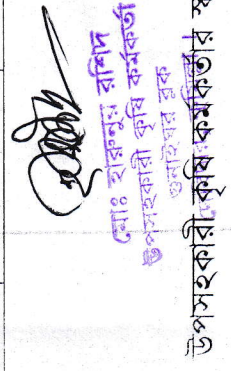 মোঃ হারুনুর রশিদ
উপসহকারী কৃষি কর্মকর্তা
ব্লক
উপসহকারী কৃষি কর্মকর্তার